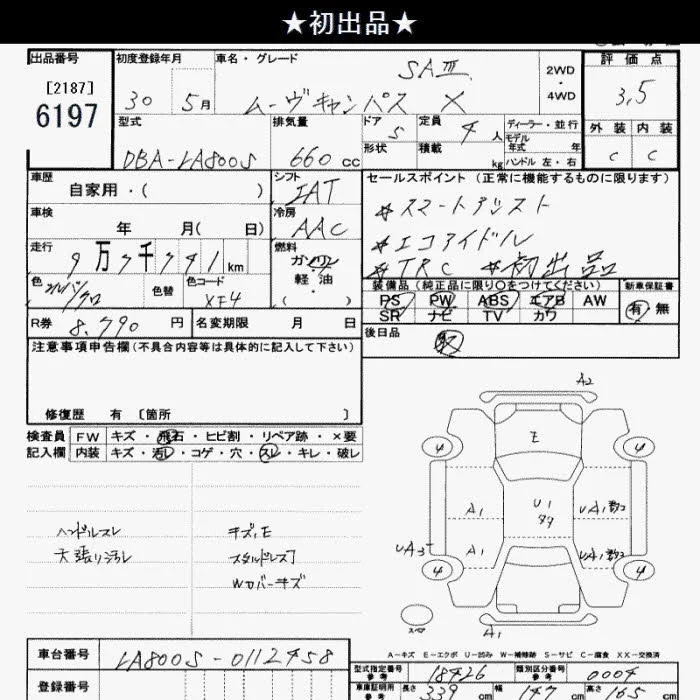 ★初出品★
出品番号
[2187]
6197
初度登録年月
30 5月
車名・グレード
SAⅢ
ムーヴキャンバス X
2WD
・
4WD
評価点
3.5
外装 内装
C C
型式
DBA-LA800S
排気量
660 cc
ドア 5
形状
定員 4 人
積載 kg
ディーラー・並行
モデル年式 年
ハンドル 左・右
車歴
自家用・( )
シフト
IAT
車検
年 月( 日)
冷房
AAC
走行
9万7千741km
燃料
ガソリン
軽・油
( )
色
色替
色コード
XF4
R券 8,790 円
名変期限 月 日
セールスポイント(正常に機能するものに限ります)
*スマートアシスト
*エコアイドル
*TRC *初出品
装備品(純正品に限り○をつけてください)
PS PW ABS エアB AW
SR ナビ TV カワ
新車保証書
有 無
後日品
取
注意事項申告欄(不具合内容等は具体的に記入して下さい)
修復歴 有 〔箇所 〕
検査員
記入欄
FW キズ・飛石・ヒビ割・リペア跡・×要
内装 キズ・汚レ・コゲ・穴・スレ・キレ・破レ
ハンドルスレ
天張り汚レ
キズ、E
Wカバーキズ
A2
E
4 4
A1
U1
UA1
A1
4 4
スペア
A1
A-キズ E-エクボ U-凹み W-補修跡 S-サビ C-腐食 XX-交換済
車台番号
LA800S-0112458
登録番号
型式指定番号
参考
18426
類別区分番号
参考
0004
車庫証明用
参考
長さ 339 cm
幅 147 cm
高さ 165 cm